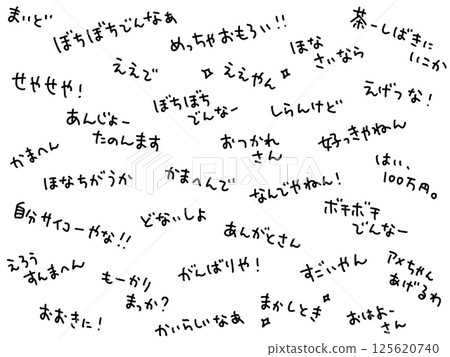 まいど
ぼちぼちでんなぁ
めっちゃおもろい!!
ほな
さいなら
茶ーしばきに
いこか
せやせや!
ええで
ええやん
えげつな!
あんじょー
たのんます
ぼちぼち
でんなー
しらんけど
おつかれ
さん
好っきやねん
かまへん
ほなちがうか
かまへんで
なんでやねん!
はい、
100万円。
自分サイコーやな!!
どないしよ
あんがとさん
ボチボチ
でんなー
えろう
すんまへん
もーかり
まっか?
がんばりや!
すごいやん
アメちゃん
あげるわ
おおきに!
かいらしいなあ
まかしとき
おはよー
さん
PIXTA
pixta.jp - 125620740